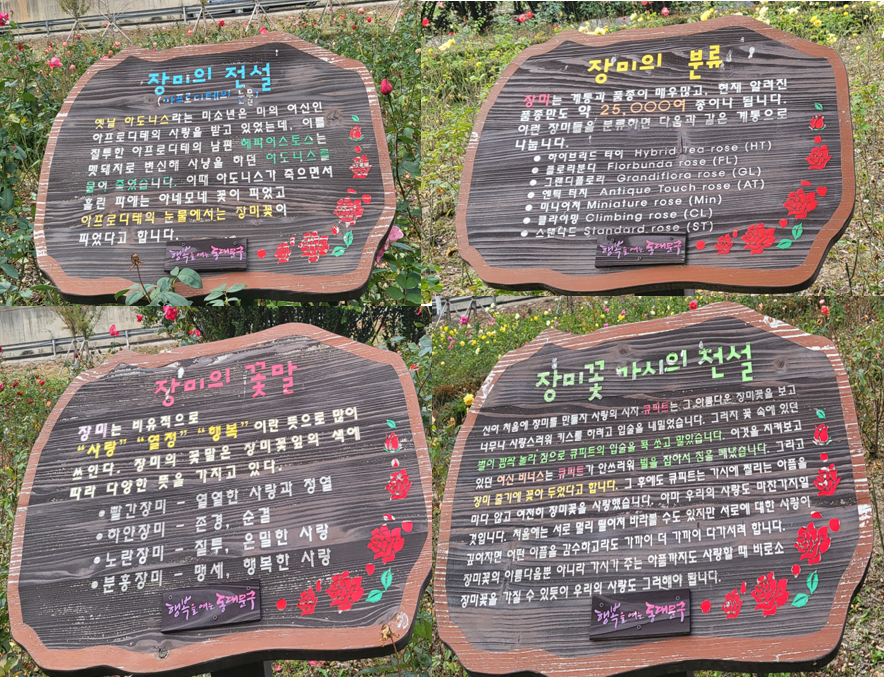 장미의 전설
아프로디테의 눈물
옛날 아도니스라는 미소년은 미의 여신인
아프로디테의 사랑을 받고 있었는데, 이를
질투한 아프로디테의 남편 헤파이스토스는
멧돼지로 변신해 사냥을 하던 아도니스를
물어 죽였습니다. 이때 아도니스가 죽으면서
흘린 피에는 아네모네 꽃이 피었고
아프로디테의 눈물에서는 장미꽃이
피었다고 합니다.
행복을 여는 동대문구
장미의 분류
장미는 계통과 품종이 매우많고, 현재 알려진
품종만도 약 25,000여 종이나 됩니다.
이런 장미들을 분류하면 다음과 같은 계통으로
나눕니다.
● 하이브리드 티이 Hybrid Tea rose (HT)
● 플로리분다 Florbunda rose (FL)
● 그랜디플로라 Grandiflora rose (GL)
● 엔틱 터치 Antique Touch rose (AT)
● 미니어처 Miniature rose (Min)
● 클라이밍 Climbing rose (CL)
● 스탠다드 Standard rose (ST)
행복을 여는 동대문구
장미의 꽃말
장미는 비유적으로
“사랑” “열정” “행복” 이란 뜻으로 많이
쓰인다. 장미의 꽃말은 장미꽃잎의 색에
따라 다양한 뜻을 가지고 있다.
● 빨간장미 - 열렬한 사랑과 정열
● 하얀장미 - 존경, 순결
● 노란장미 - 질투, 은밀한 사랑
● 분홍장미 - 맹세, 행복한 사랑
행복을 여는 동대문구
장미꽃 가시의 전설
신이 처음에 장미를 만들자 사랑의 사자 큐피트는 그 아름다운 장미꽃을 보고
너무나 사랑스러워 키스를 하려고 입술을 내밀었습니다. 그러자 꽃 속에 있던
벌이 깜짝 놀라 침으로 큐피트의 입술을 콕 쏘고 말았습니다. 이것을 지켜보고
있던 여신 비너스는 큐피트가 안쓰러워 벌을 잡아서 침을 빼냈습니다. 그리고
장미 줄기에 꽂아 두었다고 합니다. 그 후에도 큐피트는 가시에 찔리는 아픔을
마다 않고 여전히 장미꽃을 사랑했습니다. 아마 우리의 사랑도 마찬가지일
것입니다. 처음에는 서로 멀리 떨어져 바라볼 수도 있지만 서로에 대한 사랑이
깊어지면 어떤 아픔을 감수하고라도 가까이 더 가까이 다가서려 합니다.
장미꽃의 아름다움뿐 아니라 가시가 주는 아픔까지도 사랑할 때 비로소
장미꽃을 가질 수 있듯이 우리의 사랑도 그러해야 됩니다.
행복을 여는 동대문구